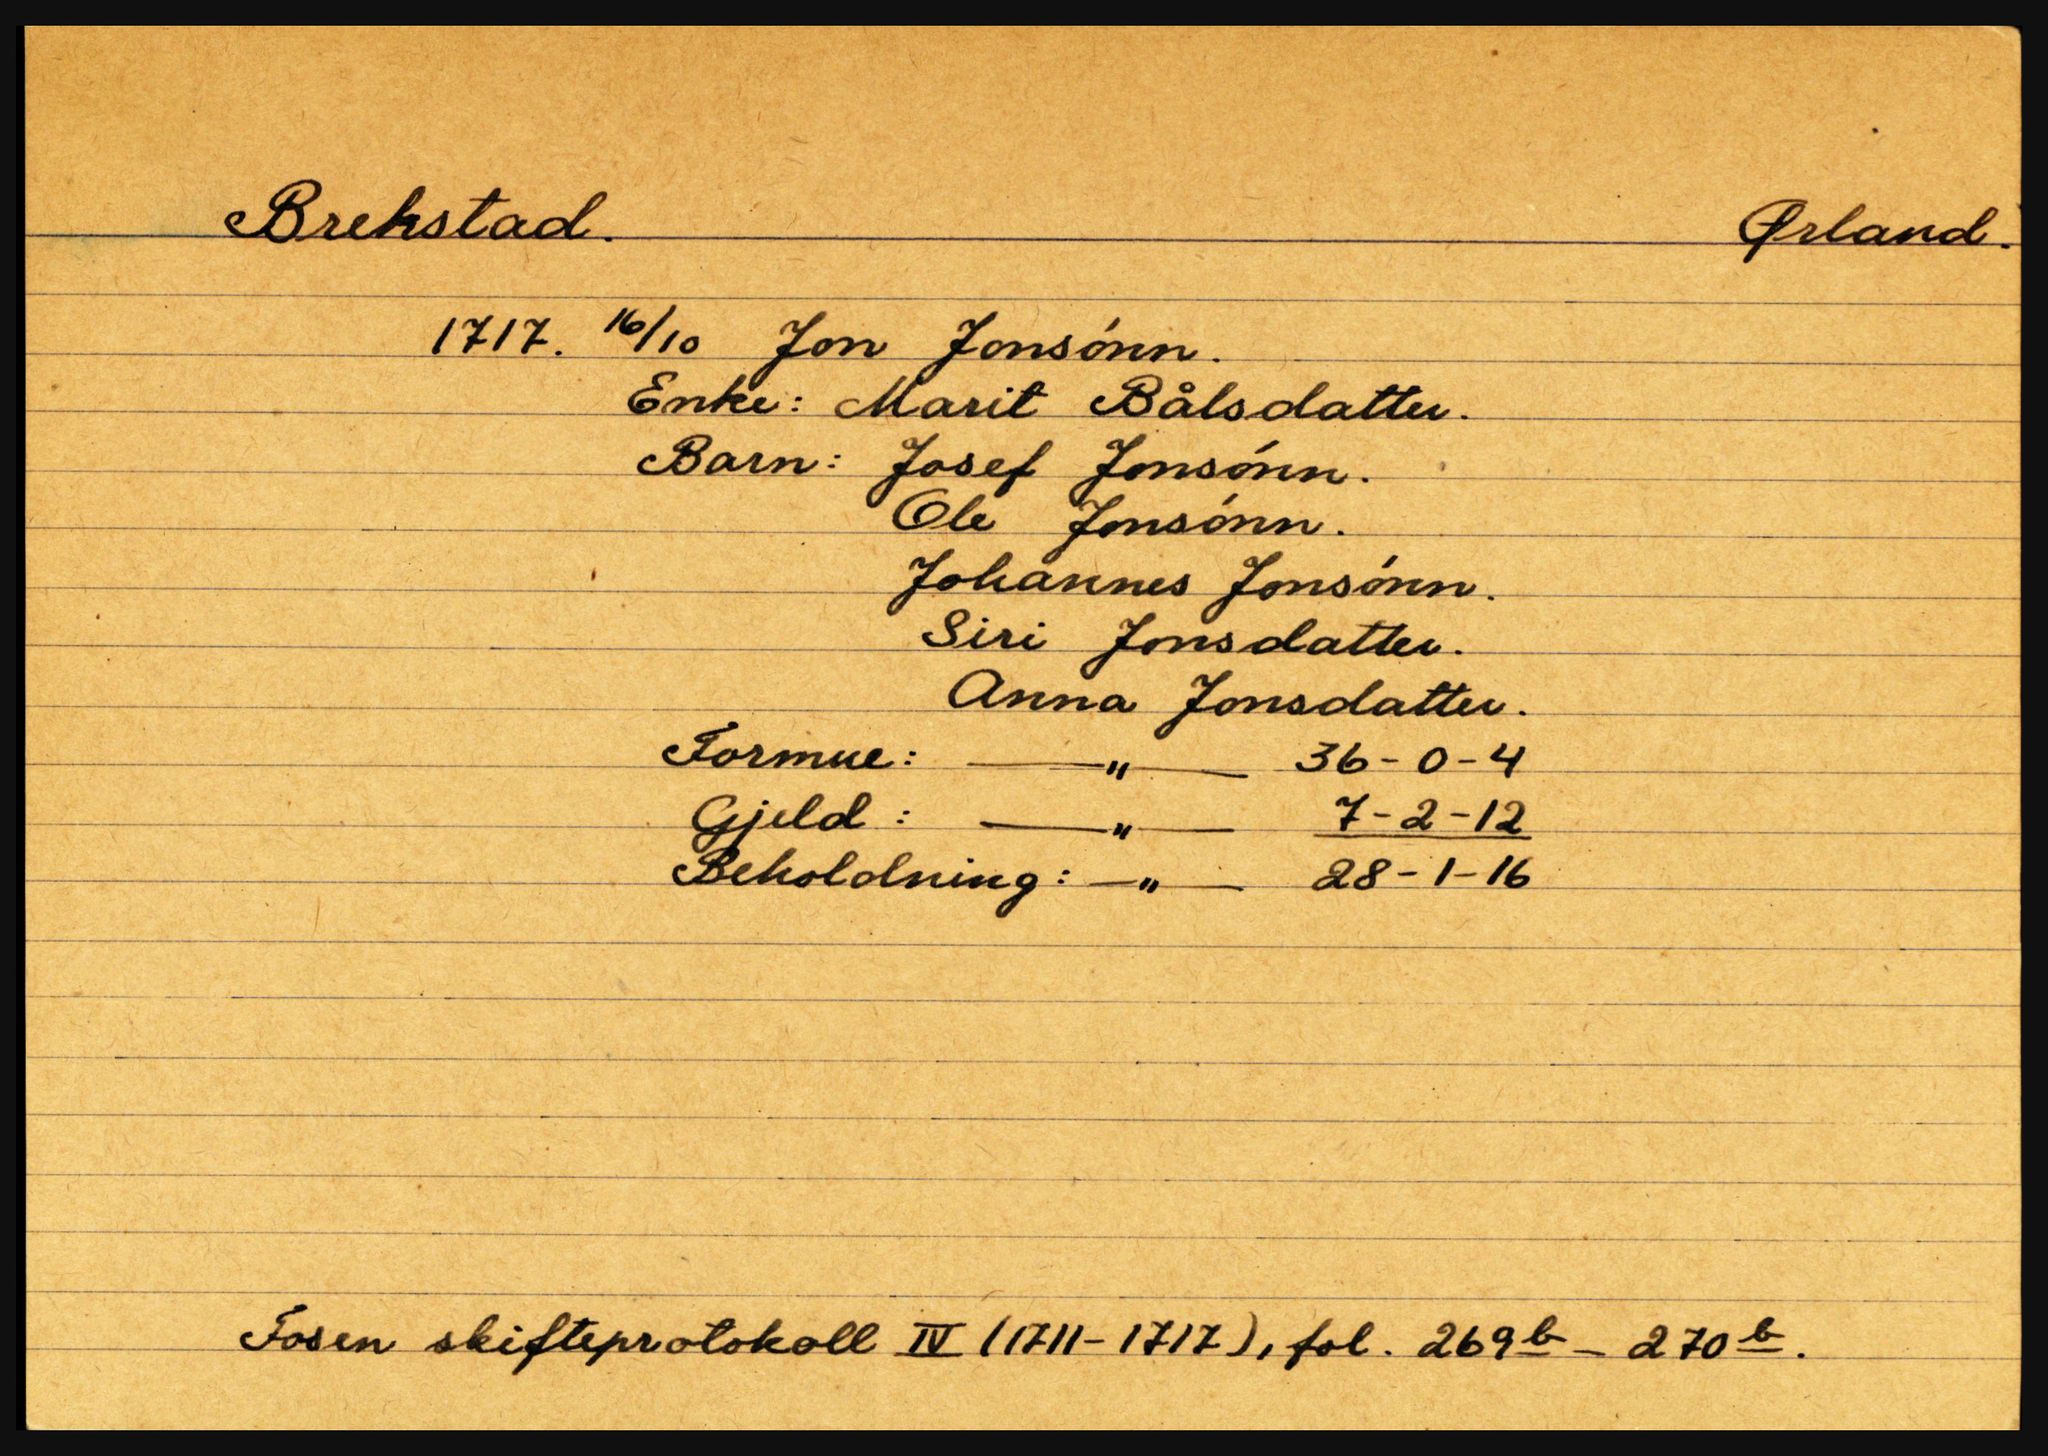 Brekstad. Ørland.
1717. 16/10 Jon Jonsónn.
Enke: Marit Bålsdatter.
Barn: Josef Jonsónn.
Ole Jonsónn.
Johannes Jonsónn.
Siri Jonsdatter.
Anna Jonsdatter.
Formue: — " — 36-0-4
Gjeld: — " — 7-2-12
Beholdning: — " — 28-1-16
Fosen skifteprotokoll IV (1711-1717), fol. 269b - 270b.